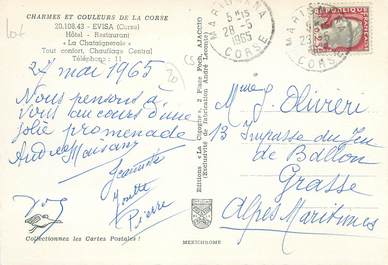 CHARMES ET COULEURS DE LA CORSE
20.108.43 - EVISA (Corse)
Hôtel - Restaurant
« La Chataigneraie »
Tout confort. Chauffage Central
Téléphone : 11
27 mai 1965
Nous pensons à
vous au cours d'une
jolie promenade
Jeannette
Yvette
Pierre
Collectionnez les Cartes Postales !
Editions « La Cigogne », 2 Place Foch, AJACCIO
(Exclusivité de fabrication André Leconte)
MEXICHROME
MARIGNANA
5 H 15
28 - 5
1965
CORSE
Mme J. Olivieri
13 Impasse du Jeu
de Ballon
Grasse
Alpes Maritimes